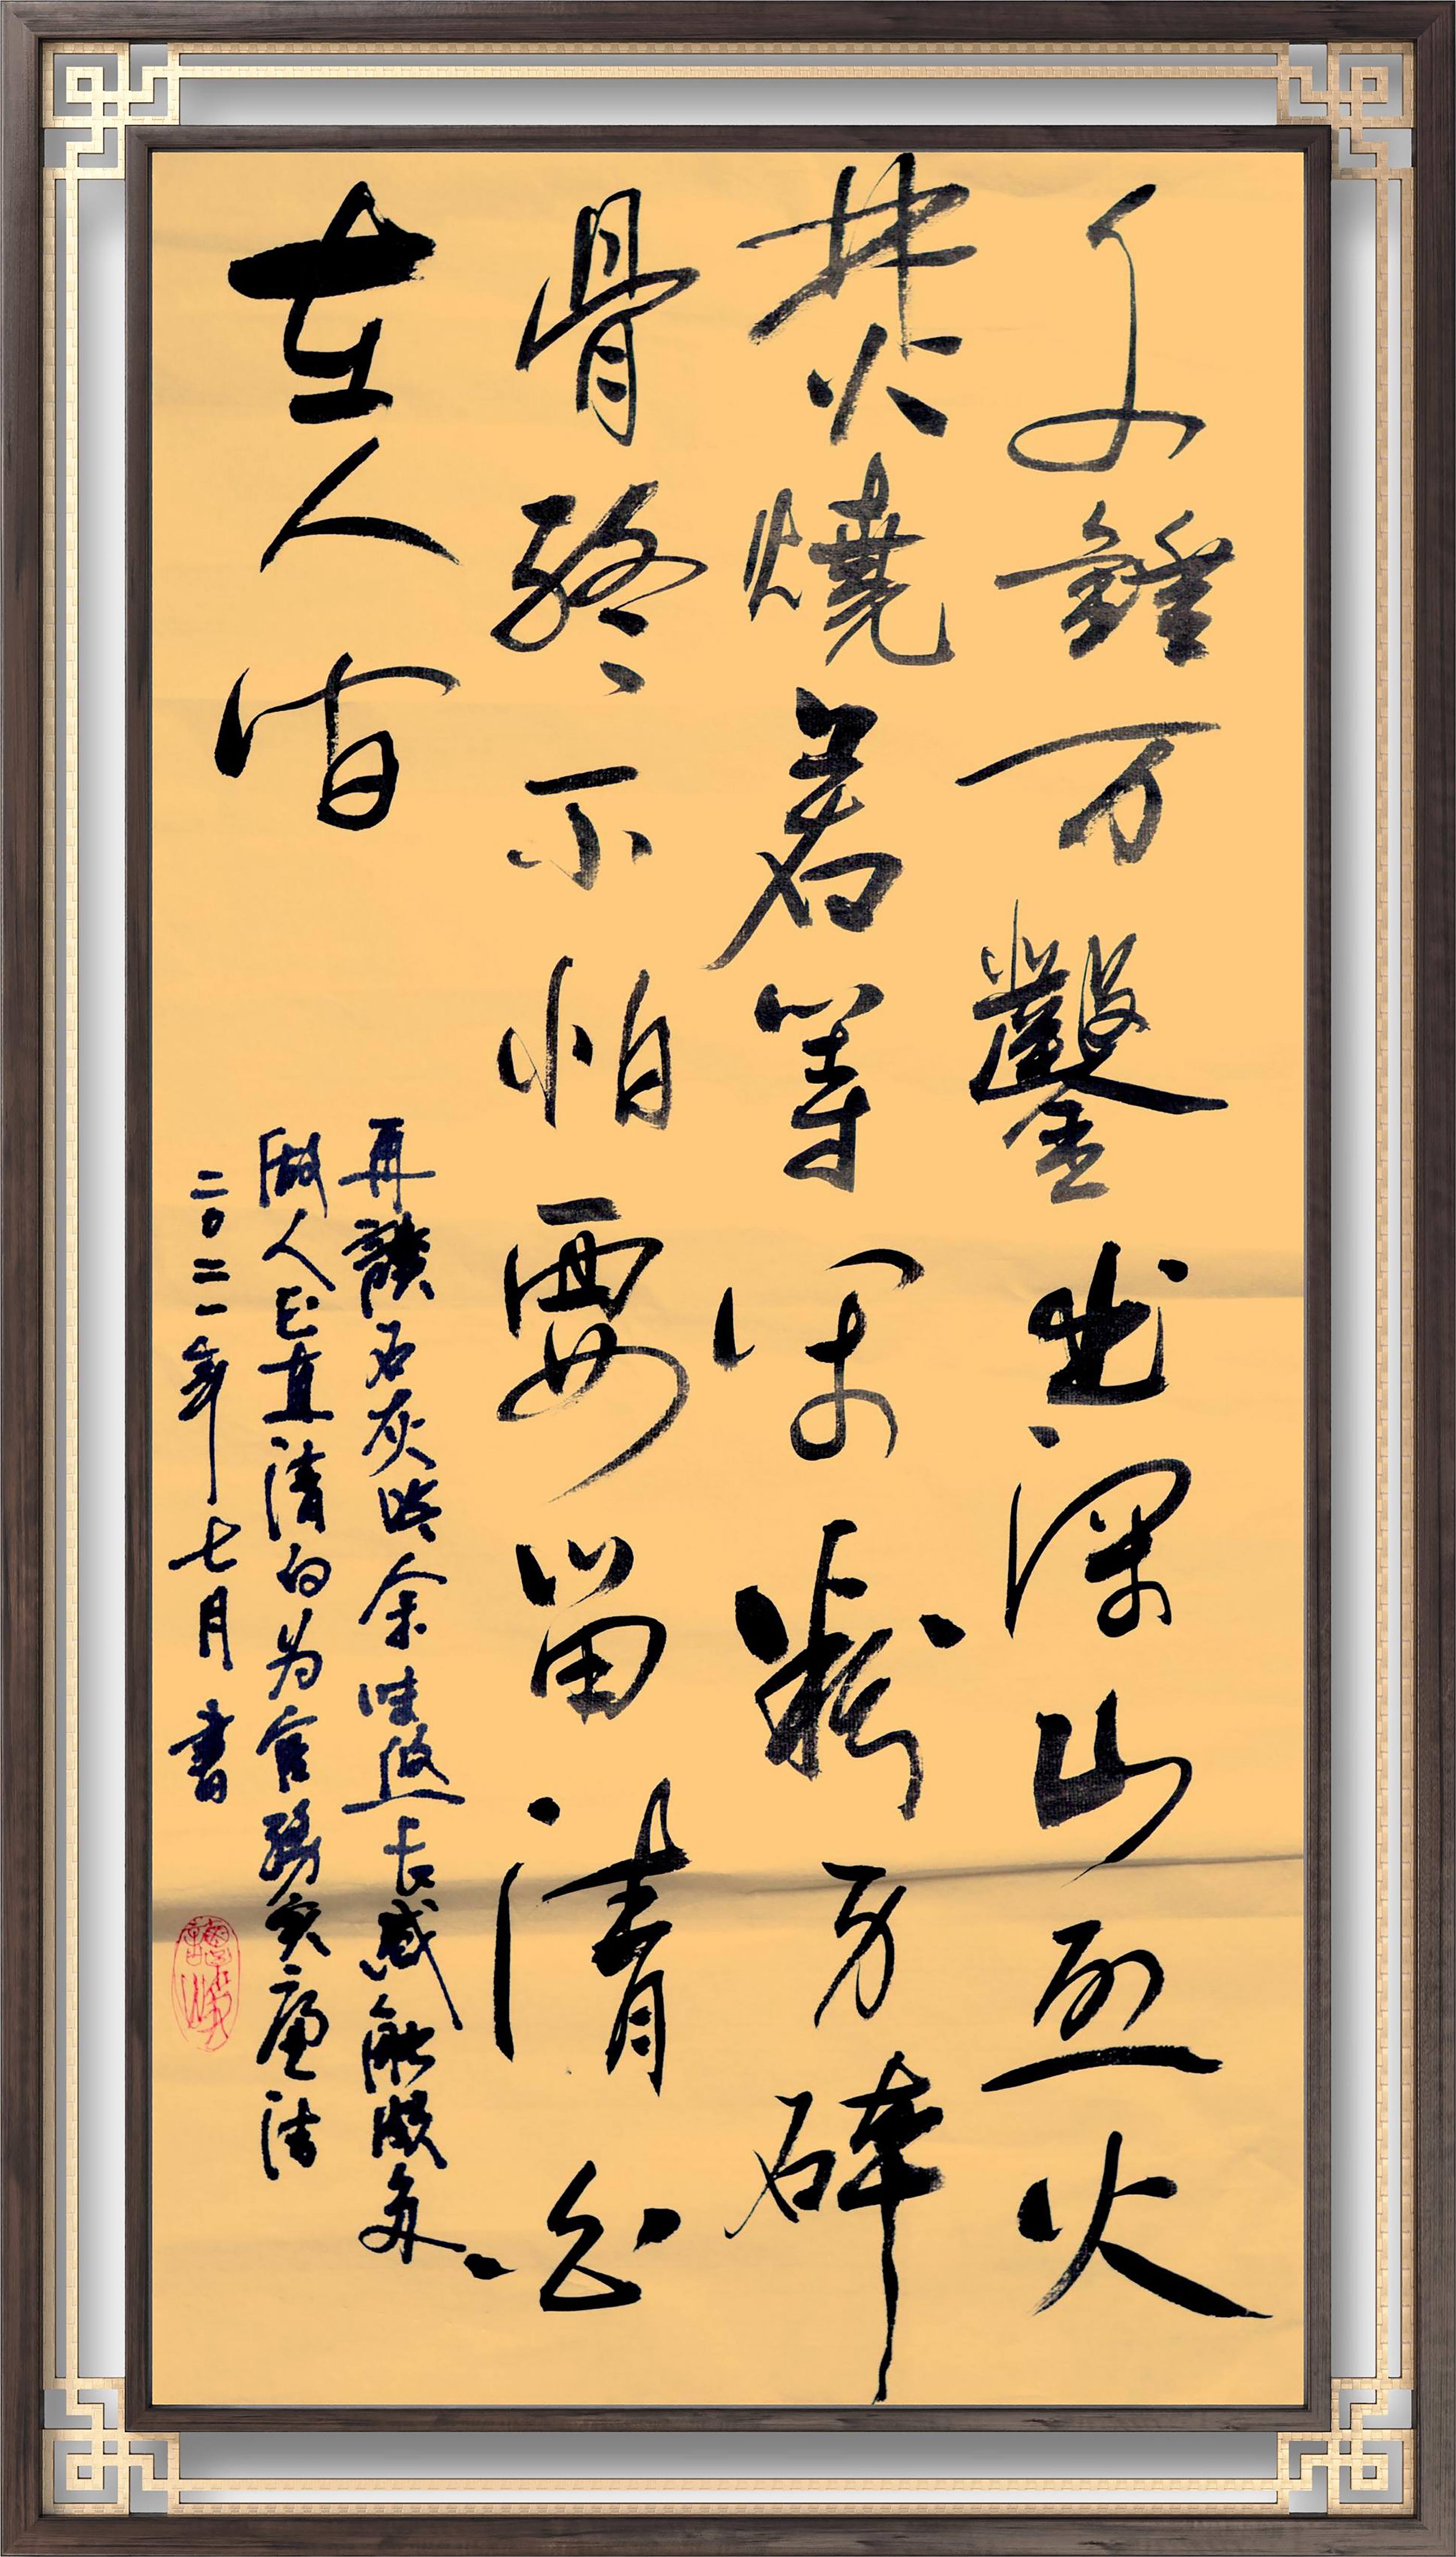 千錘万鑿出深山烈火
焚燒若等闲粉身碎
骨終不怕要留清白
在人间
再讀石灰吟余味悠长感触颇多
做人正直清白为官務实廉洁
二〇二一年七月書